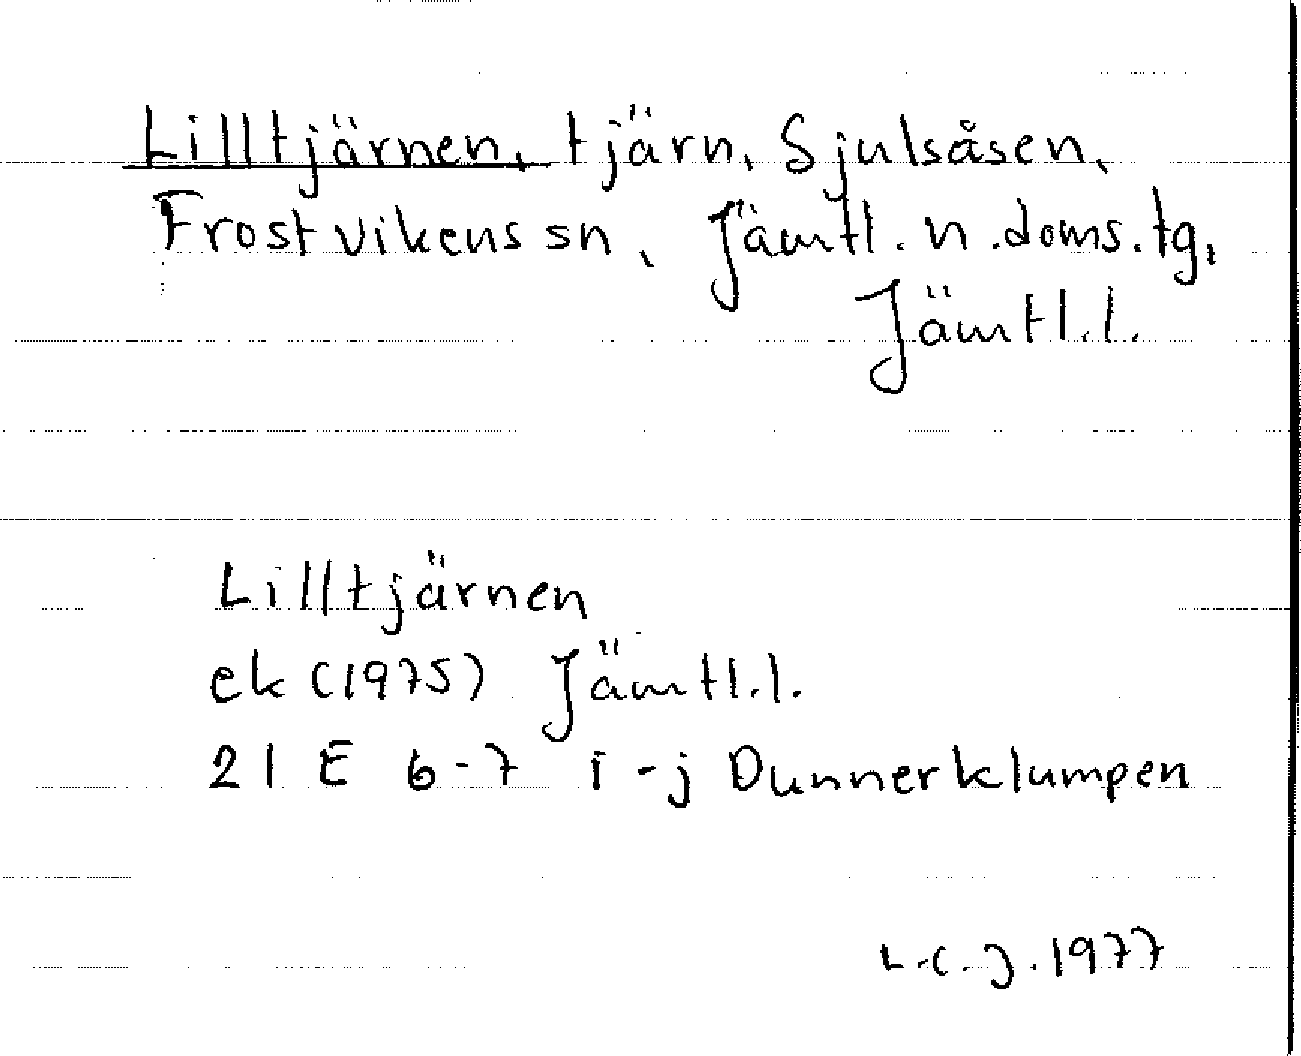 Lilltjärnen, tjärn, Sjulsåsen,
Frostvikens sn, Jämtl. n. doms. tg,
Jämtl. l.
Lilltjärnen
ek (1975) Jämtl. l.
21 E 6-7 i-j Dunnerklumpen
L.C.J. 1977